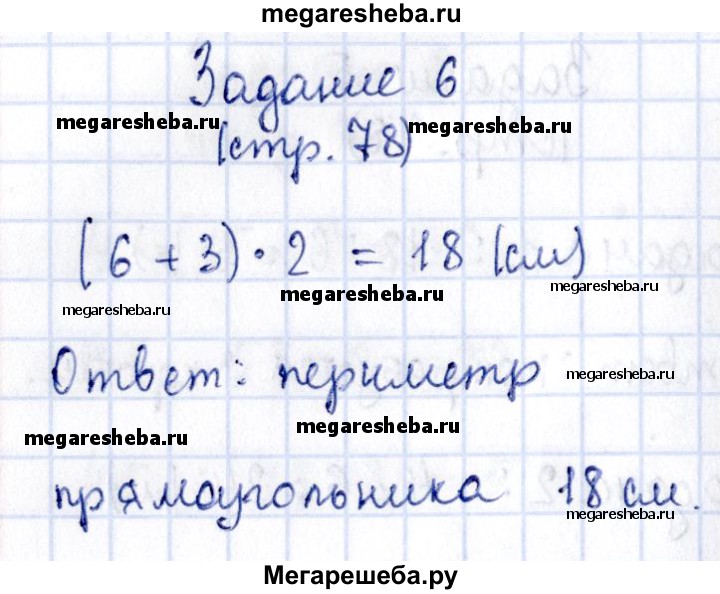 megaresheba.ru
Задание 6
megaresheba.ru
(стр. 78)
megaresheba.ru
(6 + 3) · 2 = 18 (см)
megaresheba.ru
megaresheba.ru
megaresheba.ru
Ответ: периметр
megaresheba.ru
megaresheba.ru
megaresheba.ru
прямоугольника 18 см.
megaresheba.ru
Мегарешеба.ру